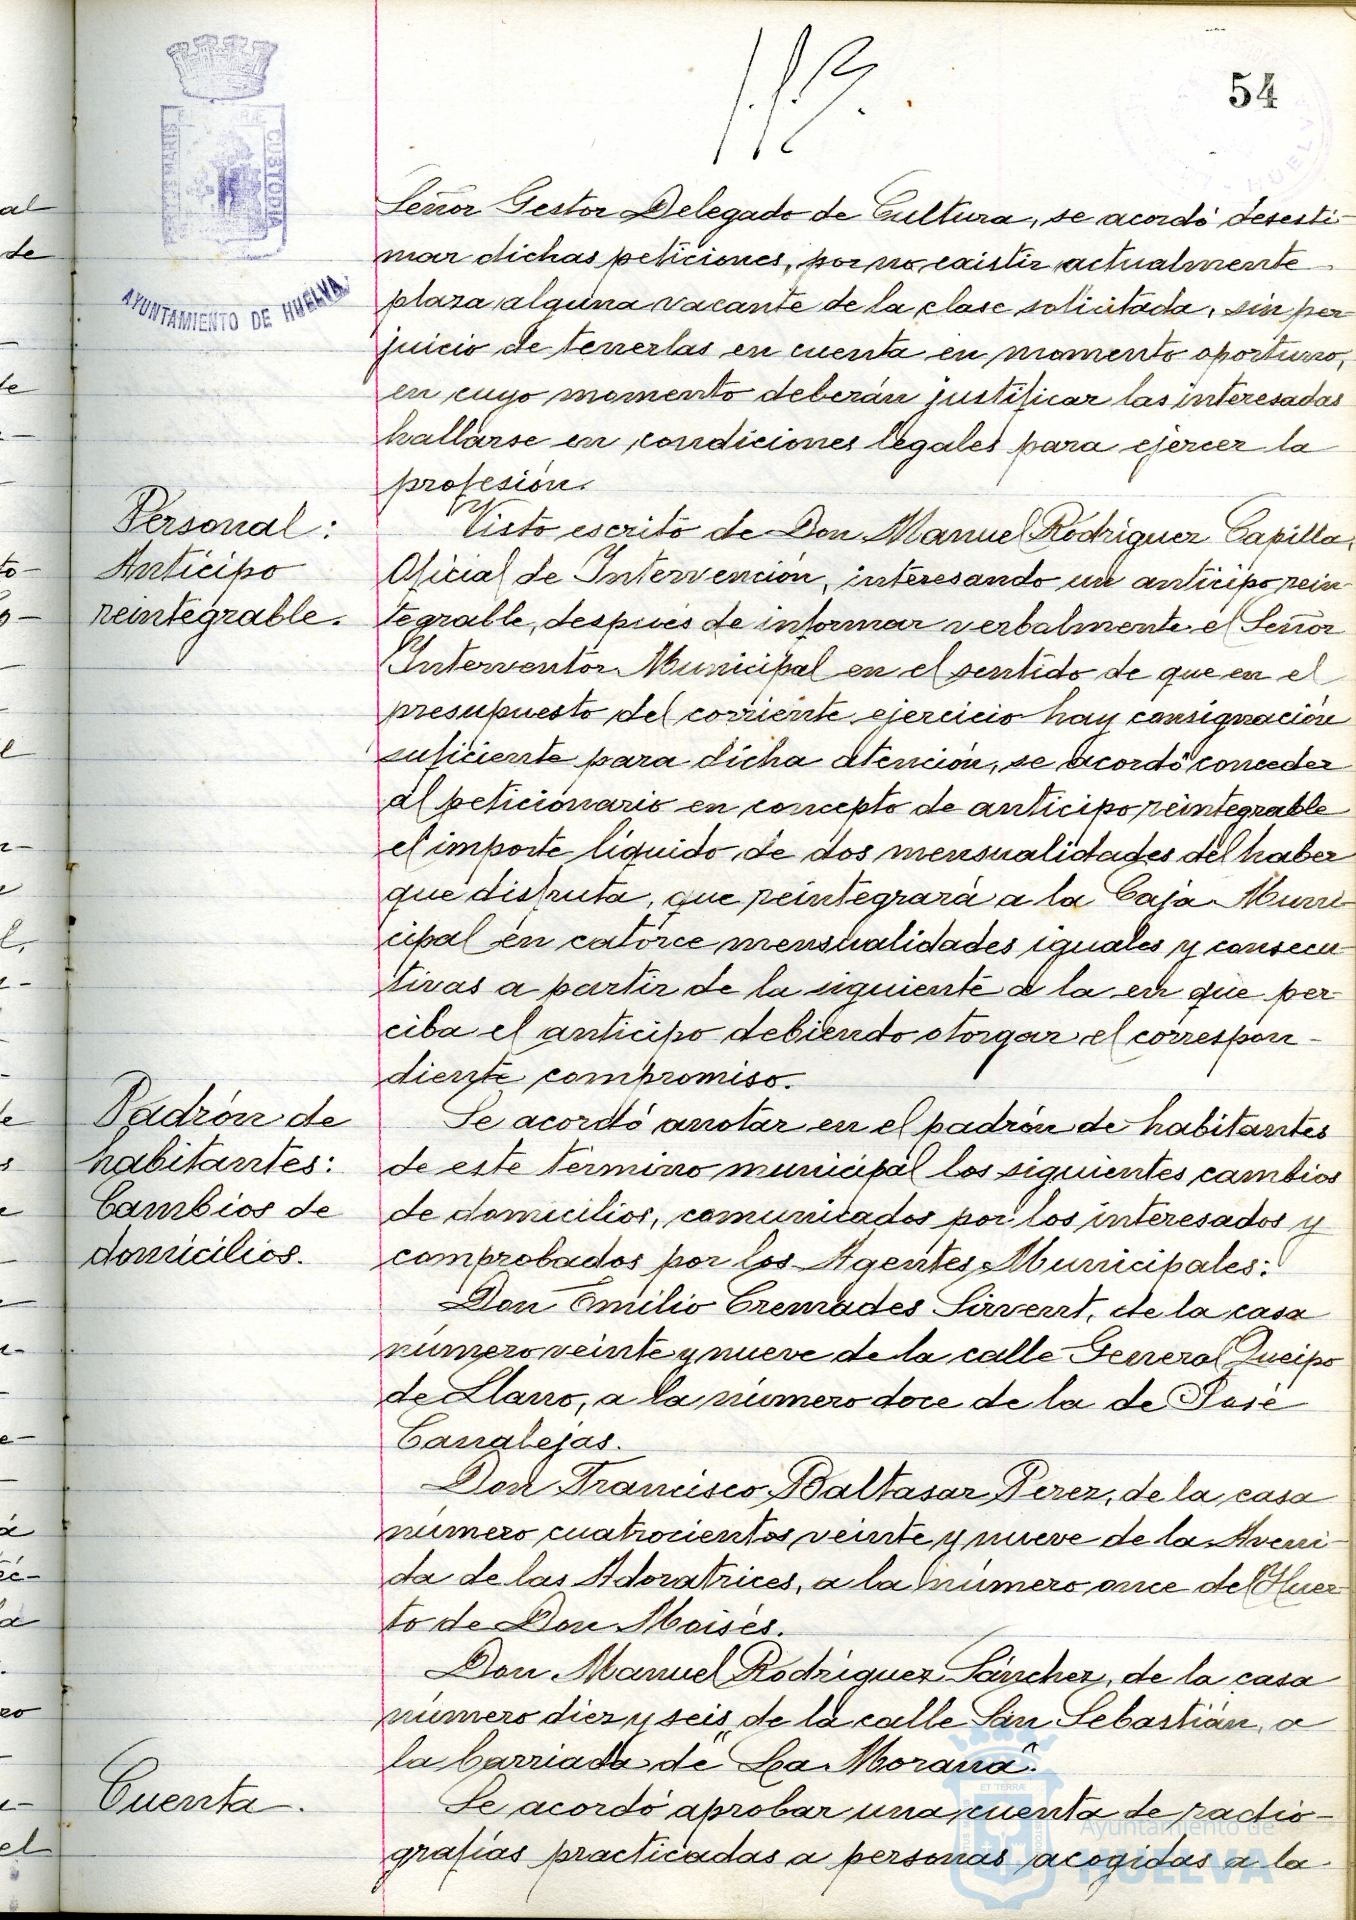 54
PORTUS MARIS ET TERRÆ CUSTODIA
AYUNTAMIENTO DE HUELVA
HUELVA
Señor Gestor Delegado de Cultura, se acordó desesti-
mar dichas peticiones, por no existir actualmente
plaza alguna vacante de la clase solicitada, sin per-
juicio de tenerlas en cuenta en momento oportuno,
en cuyo momento deberán justificar las interesadas
hallarse en condiciones legales para ejercer la
profesión.
Personal:
Anticipo
reintegrable.
Visto escrito de Don Manuel Rodríguez Capilla,
Oficial de Intervención, interesando un anticipo rein-
tegrable, después de informar verbalmente el Señor
Interventor Municipal en el sentido de que en el
presupuesto del corriente ejercicio hay consignación
suficiente para dicha atención, se acordó conceder
al peticionario en concepto de anticipo reintegrable
el importe líquido de dos mensualidades del haber
que disfruta, que reintegrará a la Caja Muni-
cipal en catorce mensualidades iguales y consecu-
tivas a partir de la siguiente a la en que per-
ciba el anticipo debiendo otorgar el correspon-
diente compromiso.
Padrón de
habitantes:
Cambios de
domicilios.
Se acordó anotar en el padrón de habitantes
de este término municipal los siguientes cambios
de domicilios, comunicados por los interesados y
comprobados por los Agentes Municipales:
Don Emilio Cremades Sirvent, de la casa
número veinte y nueve de la calle General Queipo
de Llano, a la número doce de la de José
Canalejas.
Don Francisco Baltasar Perez, de la casa
número cuatrocientos veinte y nueve de la Aveni-
da de las Adoratrices, a la número once del Huer-
to de Don Moisés.
Don Manuel Rodríguez Sánchez, de la casa
número diez y seis de la calle San Sebastián, a
la barriada de "La Morana".
Cuenta.
Se acordó aprobar una cuenta de radio-
grafías practicadas a personas acogidas a la
Ayuntamiento de
HUELVA